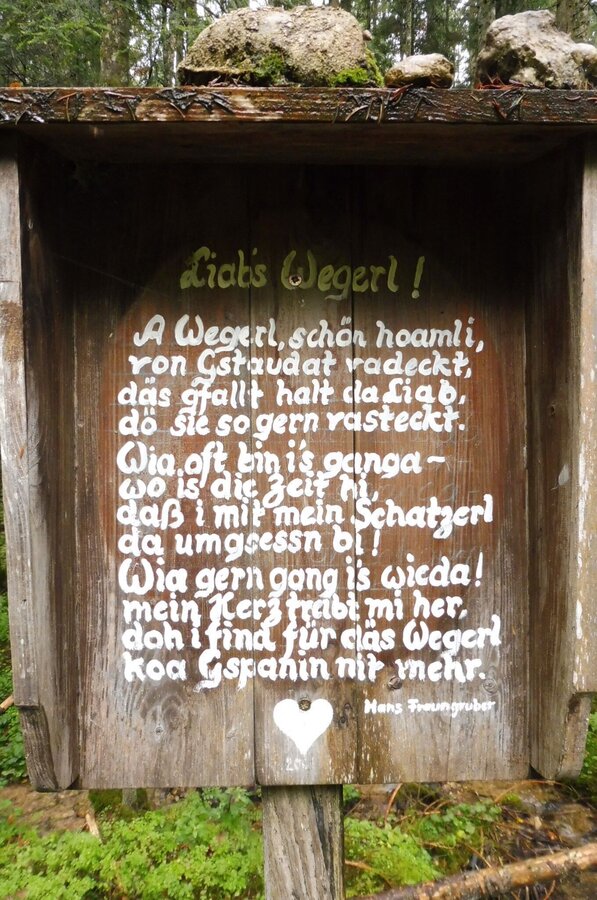 Liab's Wegerl!
A Wegerl, schön hoamli,
von Gstaudat vadeckt,
däs gfallt halt da Liab,
dö sie so gern vasteckt.
Wia oft bin i's ganga –
wo is die Zeit hi,
daß i mit mein Schatzerl
da umgsessn bi!
Wia gern gang is wieda!
mein Herz trabt mi her,
doh i find für däs Wegerl
koa Gspanin nit mehr.
Hans Fraungruber